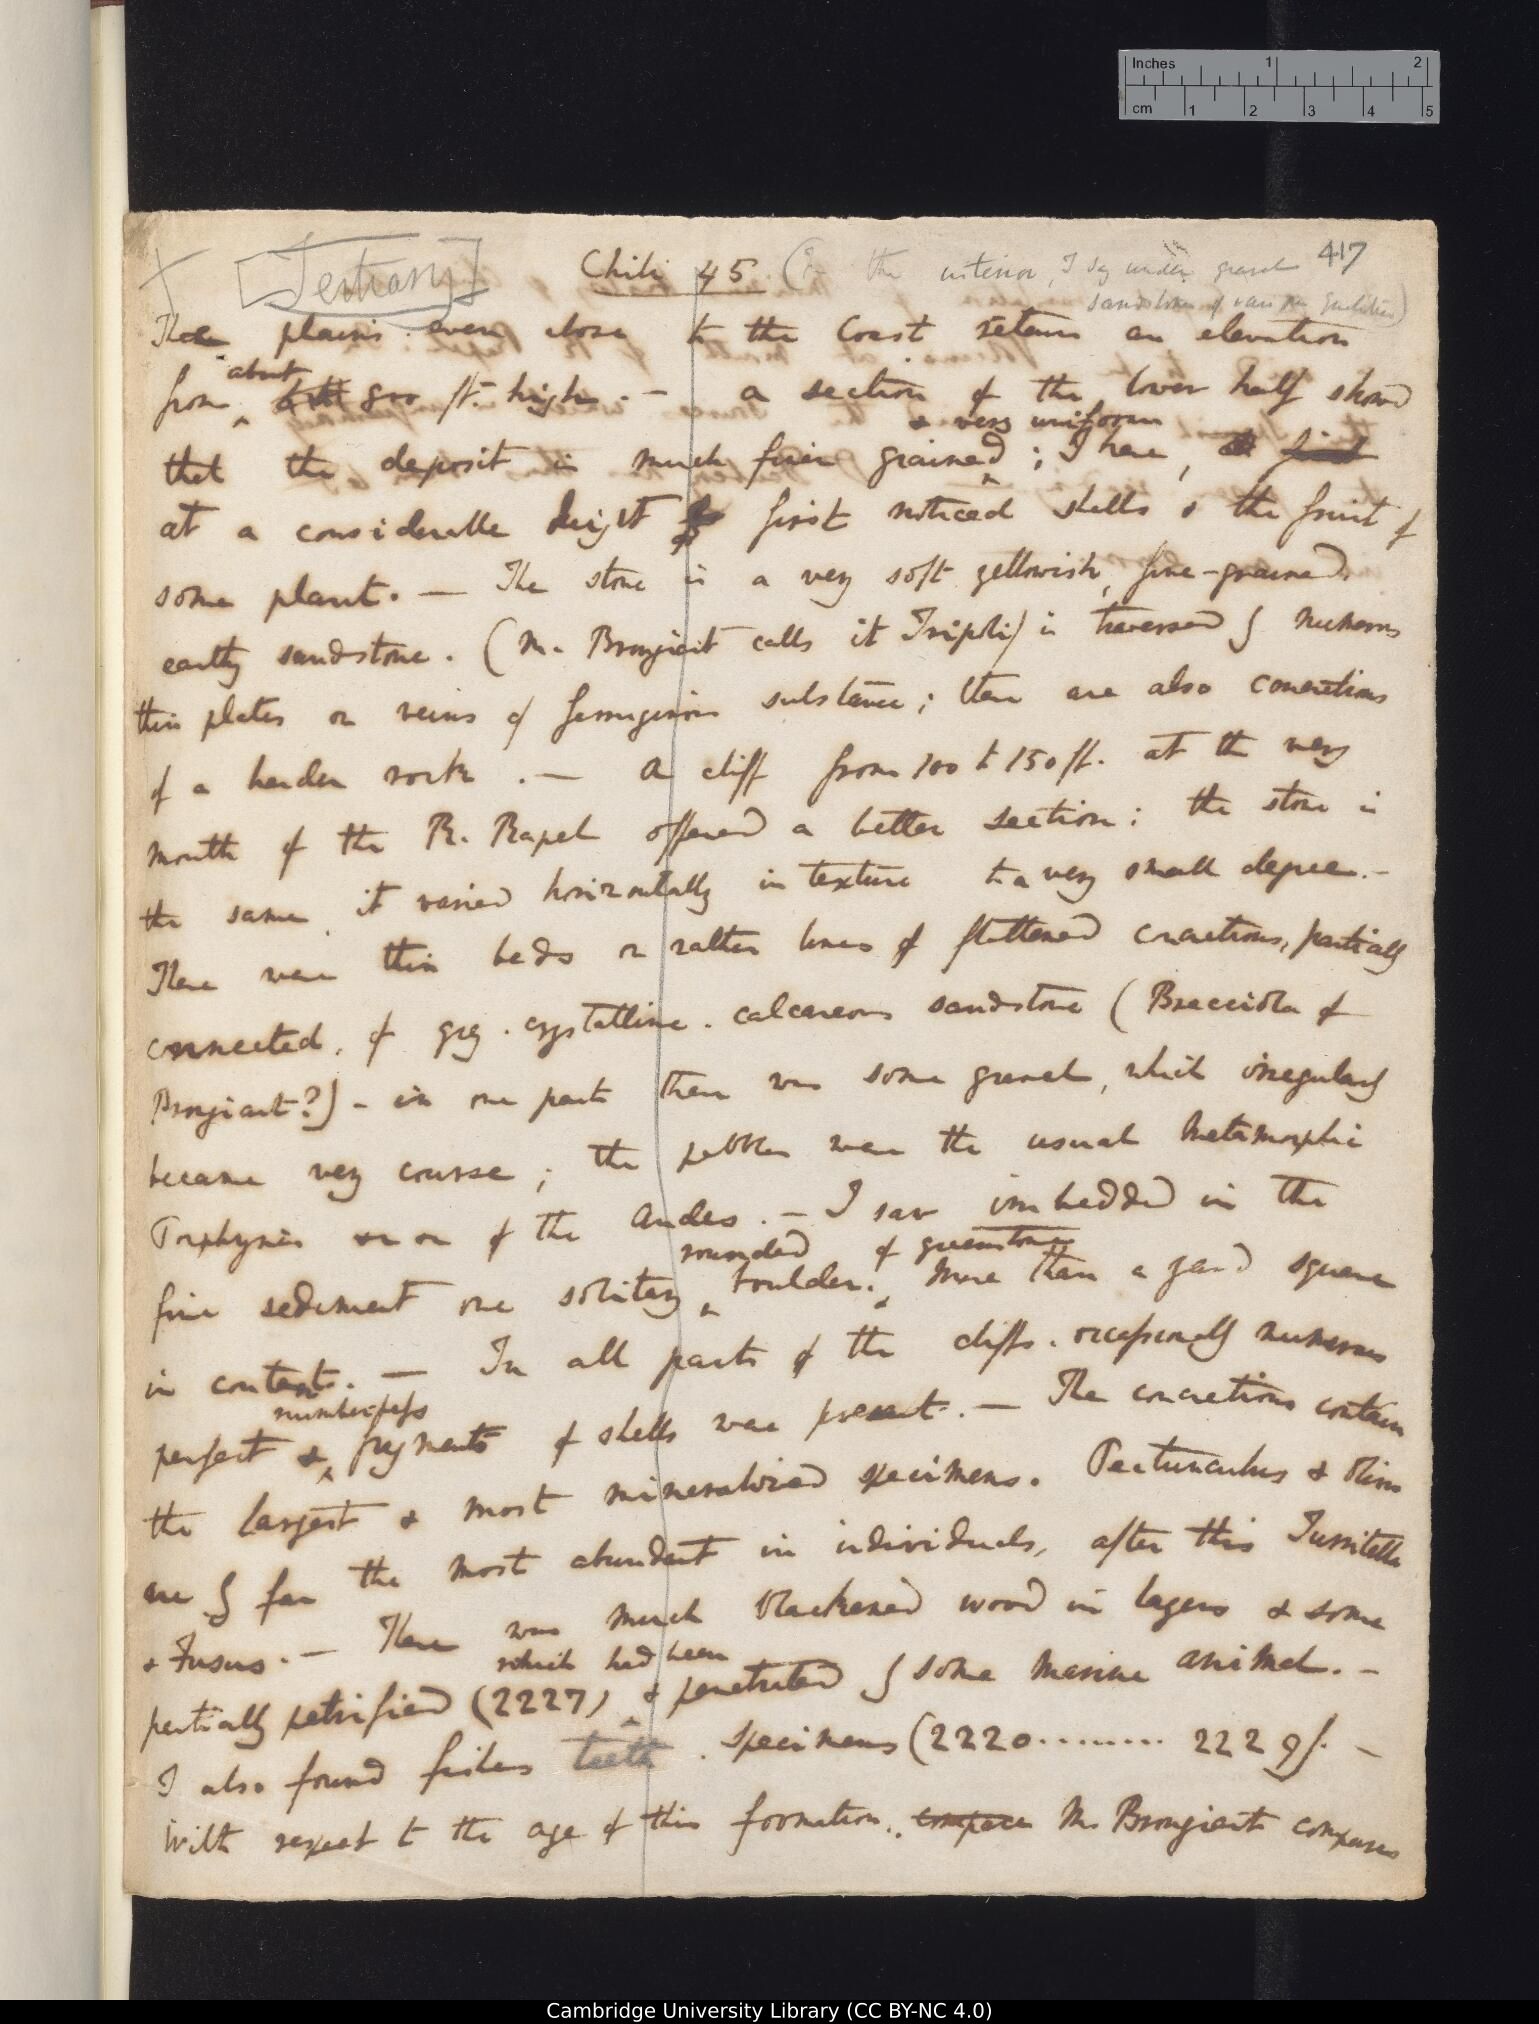 Inches 1 2
cm 1 2 3 4 5
417
[Tertiary] Chili 45 (In the interior, I say under gravel
sandstones of various qualities)
These plains even close to the Coast retain an elevation
about
from 800 ft. high. — A section of the lower half showed
& very uniform
that the deposit is much finer grained; I here,
at a considerable height first noticed shells & the fruit of
some plant. — The stone is a very soft yellowish, fine-grained
earthy sandstone. (M. Brongiart calls it Tripoli) is traversed by numerous
thin plates or veins of ferruginous substance; there are also concretions
of a harder rock. — A cliff from 100 to 150 ft. at the very
mouth of the R. Rapel offered a better section: the stone is
the same, it varied horizontally in texture to a very small degree. —
There were thin beds or rather lines of flattened concretions, partially
connected, of grey. crystalline. calcareous sandstone (Brecciola of
Brongiart?) - in one part there was some gravel, which irregularly
became very course; the pebbles were the usual metamorphic
Porphyries of the Andes. — I saw imbedded in the
rounded of greenstone
fine sediment one solitary boulder. more than a yard square
in content. — In all parts of the cliffs. occasionally numerous
numberless
perfect & fragments of shells were present. — The concretions contain
the largest & most mineralized specimens. Pectunculus & Oliva
are by far the most abundant in individuals, after this Turritella
& Fusus. — There was much blackened wood in layers & some
which had been
partially petrified (2227) & penetrated by some marine animal. —
I also found fishes teeth. Specimens (2220......... 2229). —
With respect to the age of this formation, compares M. Brongiart compares
Cambridge University Library (CC BY-NC 4.0)